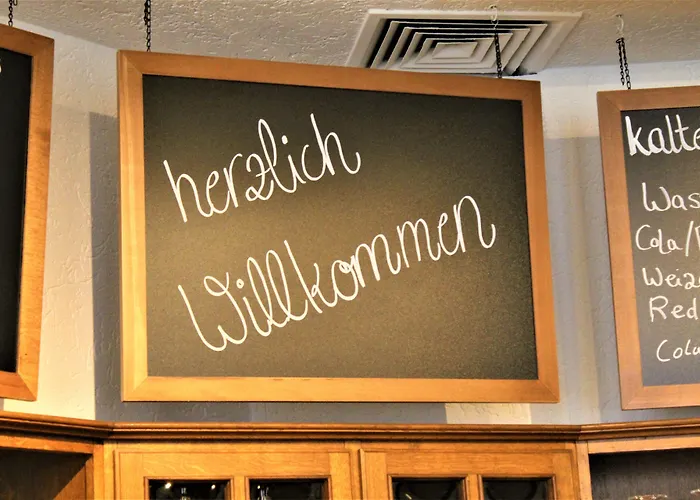 herzlich
Willkommen
kalte
Was
Cola/
Weiz
Red
Cola